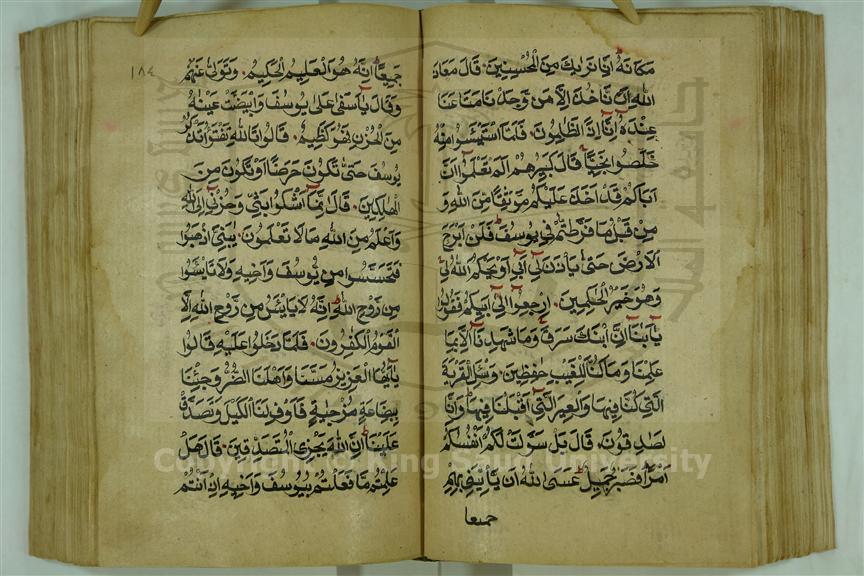 مَكَانَهُ اِنَّا نَرٰيكَ مِنَ الْمُحْسِنِينَ قَالَ مَعَاذَ
اللّٰهِ اَنْ نَأْخُذَ اِلَّا مَنْ وَجَدْنَا مَتَاعَنَا
عِنْدَهُ اِنَّا اِذًا لَظَالِمُونَ فَلَمَّا اسْتَيْئَسُوا مِنْهُ
خَلَصُوا نَجِيًّا قَالَ كَبِيرُهُمْ اَلَمْ تَعْلَمُوا اَنَّ
اَبَاكُمْ قَدْ اَخَذَ عَلَيْكُمْ مَوْثِقًا مِنَ اللّٰهِ وَ
مِنْ قَبْلُ مَا فَرَّطْتُمْ فِى يُوسُفَ فَلَنْ اَبْرَحَ
الْاَرْضَ حَتّٰى يَأْذَنَ لِى اَبِى اَوْ يَحْكُمَ اللّٰهُ لِى
وَهُوَ خَيْرُ الْحَاكِمِينَ اِرْجِعُوا اِلٰى اَبِيكُمْ فَقُولُوا
يَا اَبَانَا اِنَّ ابْنَكَ سَرَقَ وَمَا شَهِدْنَا اِلَّا بِمَا
عَلِمْنَا وَمَا كُنَّا لِلْغَيْبِ حَافِظِينَ وَسْئَلِ الْقَرْيَةَ
الَّتِى كُنَّا فِيهَا وَالْعِيرَ الَّتِى اَقْبَلْنَا فِيهَا وَاِنَّا
لَصَادِقُونَ قَالَ بَلْ سَوَّلَتْ لَكُمْ اَنْفُسُكُمْ
اَمْرًا فَصَبْرٌ جَمِيلٌ عَسَى اللّٰهُ اَنْ يَأْتِيَنِى بِهِمْ
جميعا
١٨٤
جَمِيعًا اِنَّهُ هُوَ الْعَلِيمُ الْحَكِيمُ وَتَوَلّٰى عَنْهُمْ
وَقَالَ يَا اَسَفٰى عَلٰى يُوسُفَ وَابْيَضَّتْ عَيْنَاهُ
مِنَ الْحُزْنِ فَهُوَ كَظِيمٌ قَالُوا تَاللّٰهِ تَفْتَؤُا تَذْكُرُ
يُوسُفَ حَتّٰى تَكُونَ حَرَضًا اَوْ تَكُونَ مِنَ
الْهَالِكِينَ قَالَ اِنَّمَا اَشْكُوا بَثِّى وَحُزْنِى اِلَى اللّٰهِ
وَاَعْلَمُ مِنَ اللّٰهِ مَا لَا تَعْلَمُونَ يَا بَنِىَّ اذْهَبُوا
فَتَحَسَّسُوا مِنْ يُوسُفَ وَاَخِيهِ وَلَا تَايْئَسُوا
مِنْ رَوْحِ اللّٰهِ اِنَّهُ لَا يَايْئَسُ مِنْ رَوْحِ اللّٰهِ اِلَّا
الْقَوْمُ الْكَافِرُونَ فَلَمَّا دَخَلُوا عَلَيْهِ قَالُوا
يَا اَيُّهَا الْعَزِيزُ مَسَّنَا وَاَهْلَنَا الضُّرُّ وَجِئْنَا
بِبِضَاعَةٍ مُزْجٰيةٍ فَاَوْفِ لَنَا الْكَيْلَ وَتَصَدَّقْ
عَلَيْنَا اِنَّ اللّٰهَ يَجْزِى الْمُتَصَدِّقِينَ قَالَ هَلْ
عَلِمْتُمْ مَا فَعَلْتُمْ بِيُوسُفَ وَاَخِيهِ اِذْ اَنْتُمْ
Copyright © King Saud University